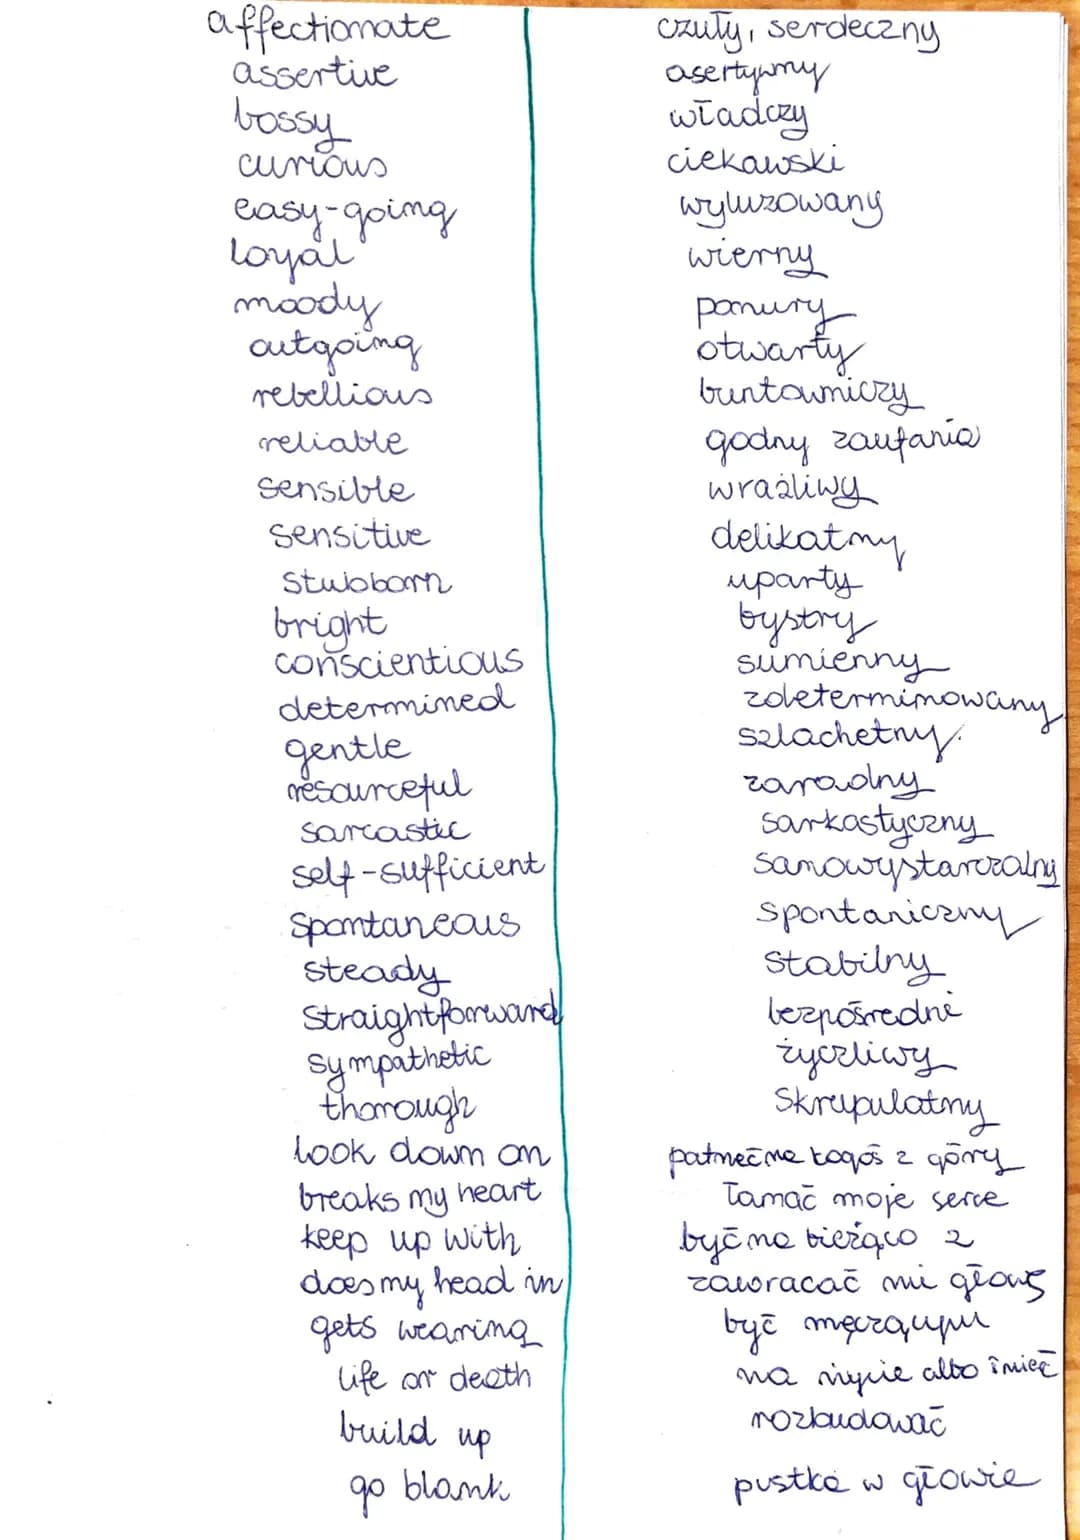 affectionate czuły, serdeczny
assertive asertywny
bossy władczy
curious ciekawski
easy-going wyluzowany
loyal wierny
moody ponury
outgoing otwarty
rebellious buntowniczy
reliable godny zaufania
sensible wrażliwy
sensitive delikatny
stubborn uparty
bright bystry
conscientious sumienny
determined zdeterminowany
gentle szlachetny.
resourceful zaradny
sarcastic sarkastyczny
self-sufficient sanowystarczalny
spontaneous spontaniczny
steady stabilny
straightforward bezpośredni
sympathetic życzliwy
thorough skrupulatny
look down on patrzeć na kogoś z góry
breaks my heart łamać moje serce
keep up with być na bieżąco z
does my head in zawracać mi głowę
gets wearing być męczącym
life or death na życie albo śmieć
build up rozbudować
go blank pustka w głowie